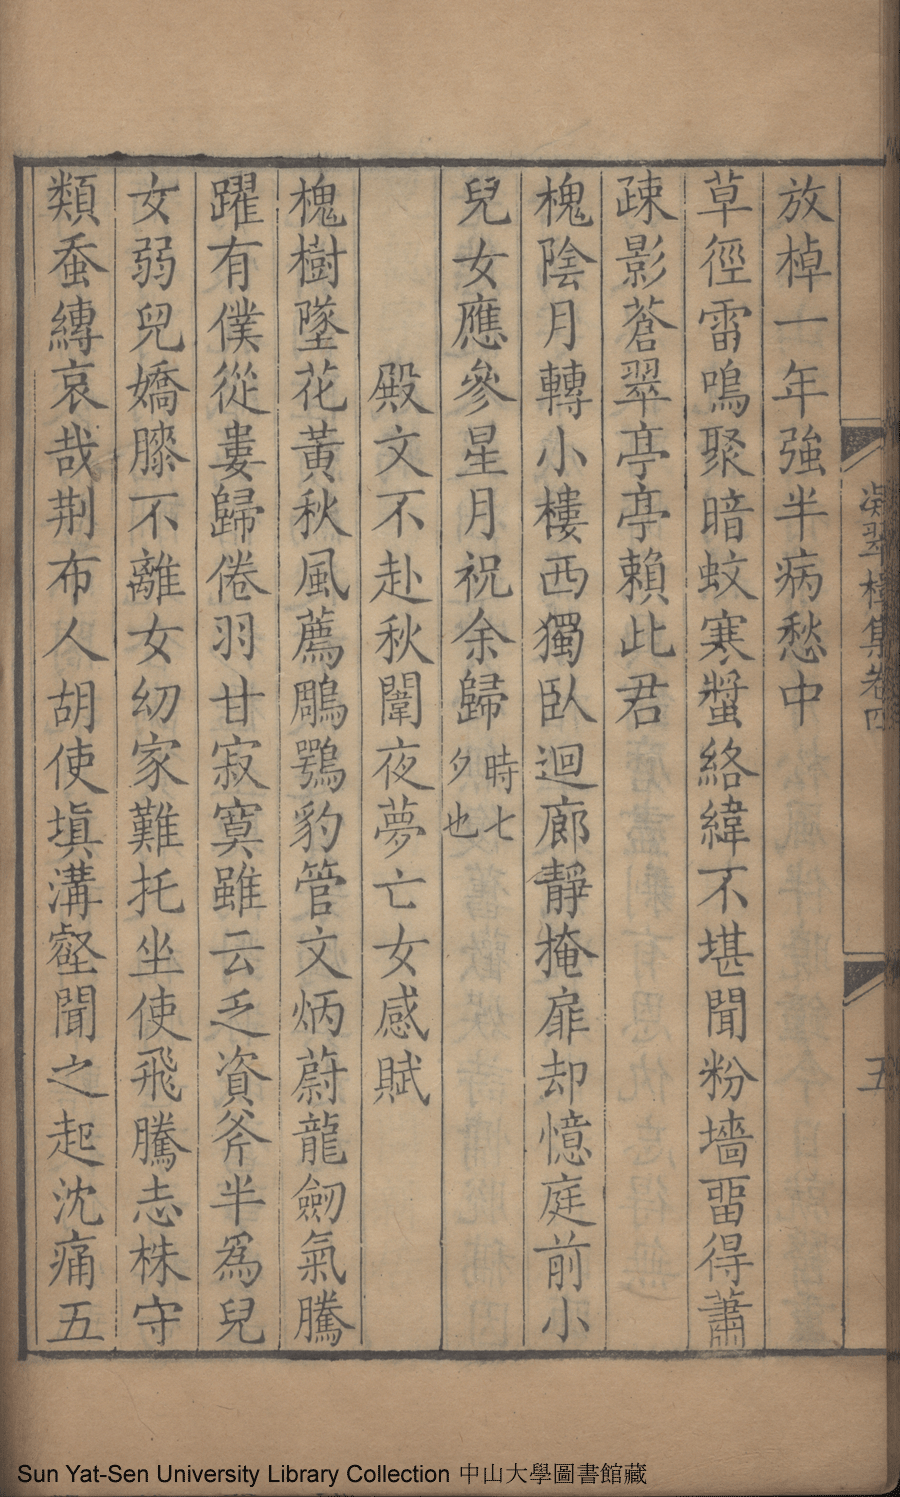 放棹一年強半病愁中
草徑雷鳴聚暗蚊寒螿絡緯不堪聞粉墻畱得蕭
疎影蒼翠亭亭賴此君
槐陰月轉小樓西獨臥迴廊靜掩扉却憶庭前小
兒女應參星月祝余歸時七夕也
殿文不赴秋闈夜夢亡女感賦
槐樹墜花黃秋風薦鵰鶚豹管文炳蔚龍劒氣騰
躍有僕從婁歸倦羽甘寂寞雖云乏資斧半爲兒
女弱兒嬌膝不離女幼家難托坐使飛騰志株守
類蚕縛哀哉荆布人胡使塡溝壑聞之起沈痛五
凝翠樓集卷四
五
Sun Yat-Sen University Library Collection 中山大學圖書館藏